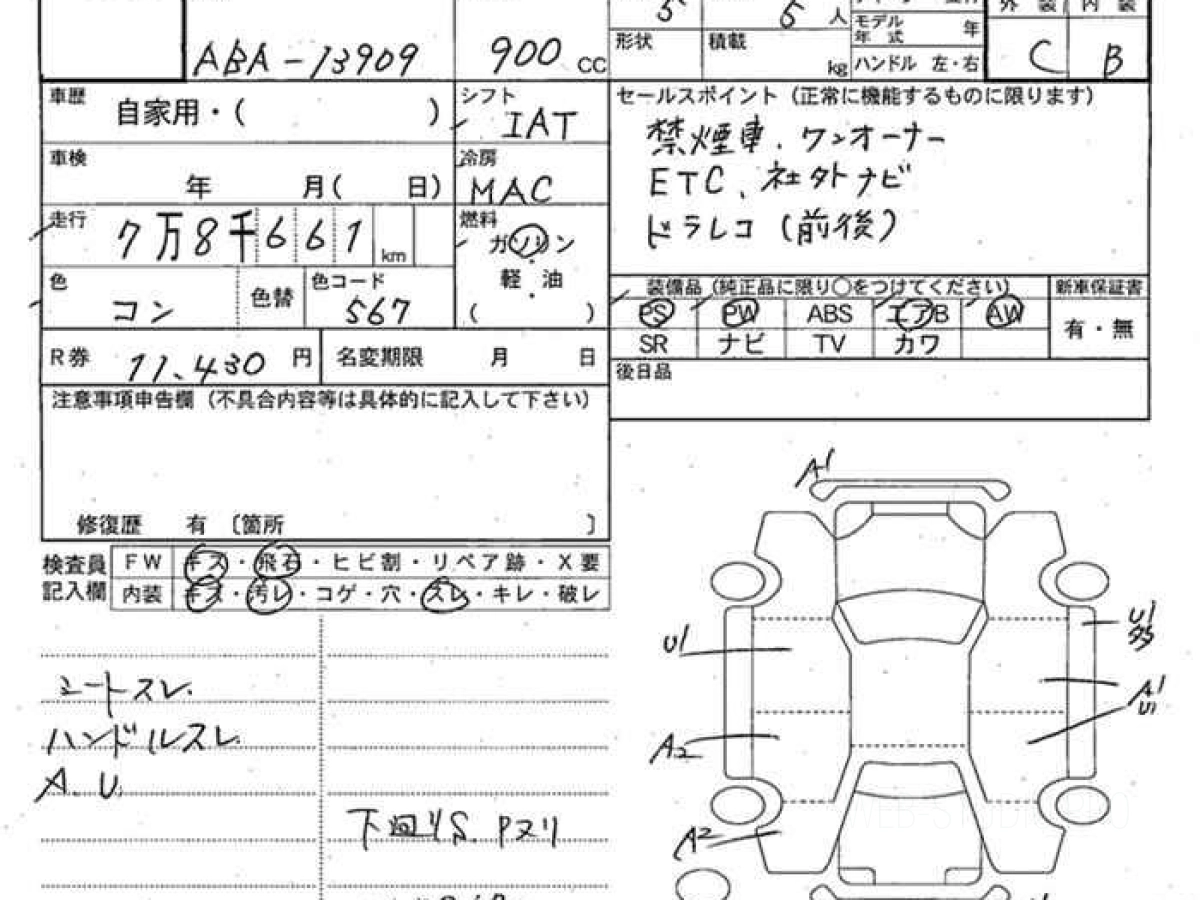 5 5 人
モデル 年
年式
外装 内装
ABA-13909 900 CC
形状 積載 kg
ハンドル 左・右
C B
車歴 自家用・( )
シフト IAT
セールスポイント (正常に機能するものに限ります)
禁煙車、ワンオーナー
ETC、社外ナビ
ドラレコ (前後)
車検 年 月( 日)
冷房 MAC
走行 7万8千661 km
燃料 ガソリン
軽・油
( )
色 コン 色替 色コード 567
装備品 (純正品に限り○をつけてください) 新車保証書
PS PW ABS エアB AW 有・無
SR ナビ TV カワ
R券 11,430 円 名変期限 月 日
後日品
注意事項申告欄 (不具合内容等は具体的に記入して下さい)
修復歴 有 〔箇所 〕
検査員 FW キズ・飛石・ヒビ割・リペア跡・X要
記入欄 内装 キズ・汚レ・コゲ・穴・スレ・キレ・破レ
シートスレ
ハンドルスレ
A.U.
下回りS.Pヌリ
A1
U1
U1
A1
U1
A2
A2